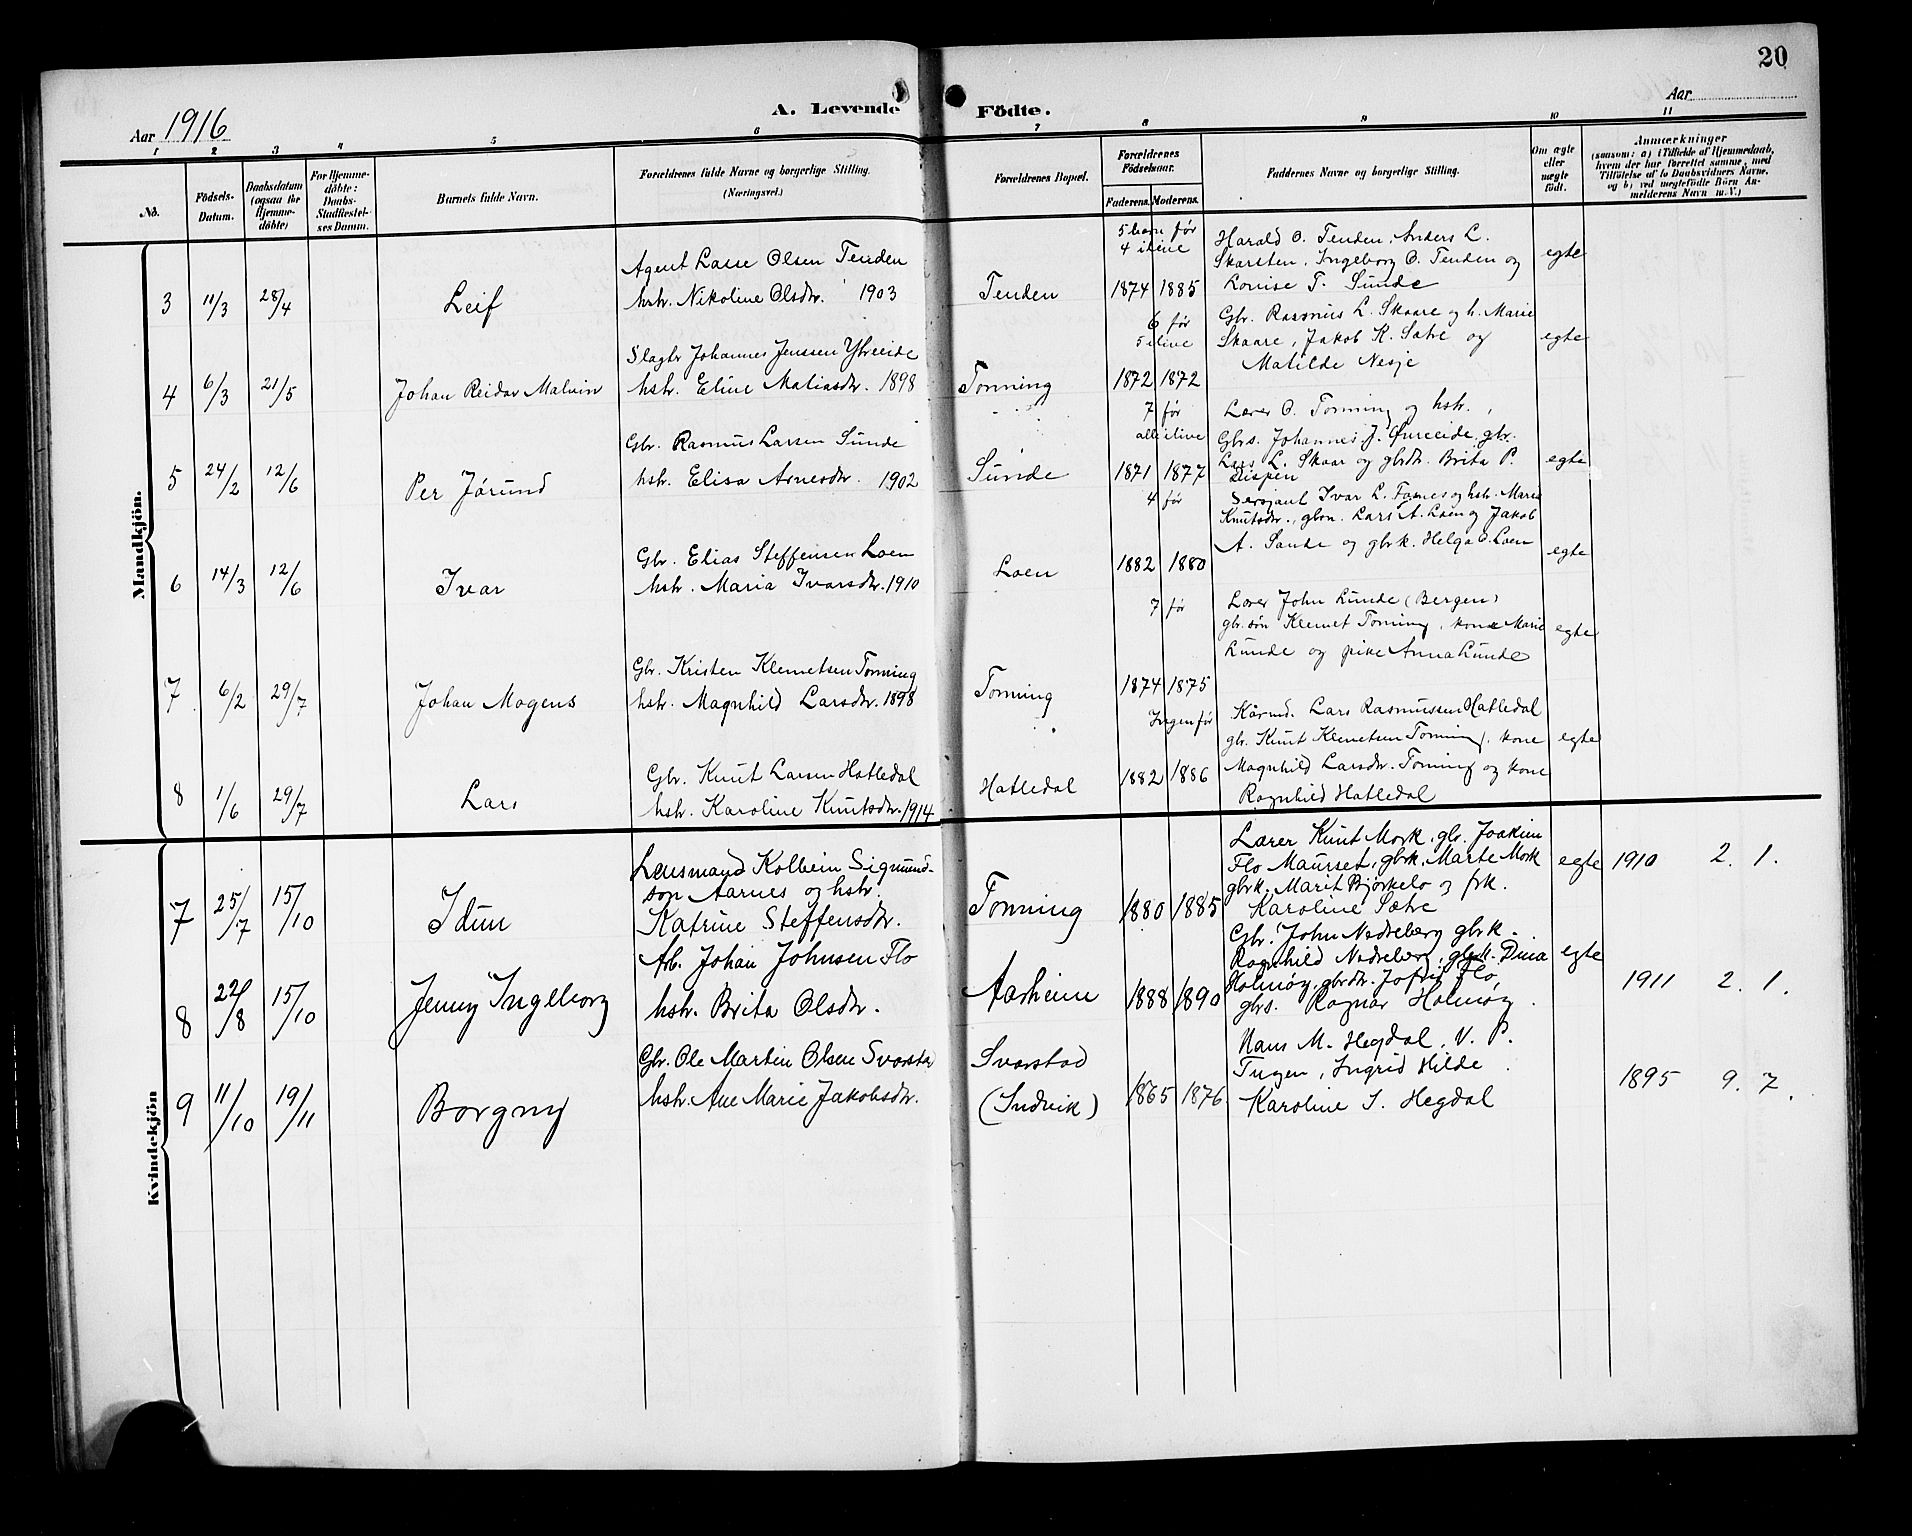 20
Aar 1916
A. Levende Födte.
Aar
1 2 3 4 5 6 7 8 9 10 11
No.
Födsels-Datum.
Daabsdatum (ogsaa for Hjemme-döbte)
For Hjemme-döbte: Daabs-Stadfæstel-ses Datum.
Barnets fulde Navn.
Forældrenes fulde Navne og borgerlige Stilling. (Næringsvei.)
Forældrenes Bopæl.
Forældrenes Födselsaar.
Faderens. Moderens.
Faddernes Navne og borgerlige Stilling.
Om ægte eller uægte födt.
Anmærkninger
(saasom: a) i Tilfælde af Hjemmedaab,
hvem der har forrettet samme, med
Tilföielse af to Daabsvidners Navne,
og b) ved uægtefödte Börn An-
melderens Navn m. V.)
Mandkjön.
3 11/3 28/4 Leif
Agent Lasse Olsen Tenden
hstr. Nikoline Olsdtr. 1903
Tenden
5 barn før
4 ilive
1874 1885
Harald O. Tenden, Anders L.
Skarsten, Ingeborg O. Tenden og
Louise T. Sunde
egte
4 6/3 21/5 Johan Reidar Malvin
Slagtr Johannes Jenssen Ybreeide
hstr. Eline Matiasdtr. 1898
Tonning
6 før
5 ilive
1872 1872
Gbr. Rasmus L. Skaare og h. Marie
Skaare, Jakob K. Sætre og
Matilde Nesje
egte
5 24/2 12/6 Per Jørund
Gbr. Rasmus Larsen Sunde
hstr. Elisa Arnesdtr. 1902
Sunde
7 før
alle ilive
1871 1877
Lærer O. Tonning og hstr.,
Gbrs. Johannes J. Øvreeide, gbr.
Lars L. Skaar og gbrdtr. Brita P.
egte
6 14/3 12/6 Ivar
Gbr. Elias Steffensen Loen
hstr. Maria Ivarsdtr. 1910
Loen
4 før
1882 1880
Sersjant Ivar L. og hstr. Marie
Knutsdtr., gbrn. Lars A. Loen og Jakob
A. Sande og gbrk. Helga O. Loen
egte
7 6/2 29/7 Johan Mogens
Gbr. Kristen Klemetsen Tonning
hstr. Magnhild Larsdtr. 1898
Tonning
7 før
1874 1875
Lærer John Lunde (Bergen)
gbr.søn Klemet Tonning, kone Marie
Lunde og pike Anna Lunde
egte
8 1/6 29/7 Lars
Gbr. Knut Larsen Hatledal
hstr. Karoline Knutsdtr. 1914
Hatledal
Ingen før
1882 1886
Kårmd. Lars Rasmussen Hatledal
gbr. Knut Klemetsen Tonning, kone
Magnhild Larsdtr. Tonning og kone
Ragnhild Hatledal
egte
Kvindekjön
7 25/7 15/10 Idun
Lensmand Kolbein Sigmund-
son Aarnes og hstr.
Katrine Steffensdtr.
Tonning
1880 1885
Lærer Knut Mork, gbr. Joakim
Flo Maurset, gbrk. Marte Mork
gbrk. Marit Bjørkelo og frk.
Karoline Sætre
egte 1910 2. 1.
8 22/8 15/10 Jenny Ingeborg
Arb. Johan Johnsen Flo
hstr. Brita Olsdtr.
Aarheim
1888 1890
Gbr. John Nedreberg gbrk.
Ragnhild Nedreberg, gbrk. Dina
Holmøy, gbrdtr. Jofrid Flo,
gbrs. Ragnar Holmøy.
egte 1911 2. 1.
9 11/10 19/11 Borgny
Gbr. Ole Martin Olsen Svarstad
hstr. Ane Marie Jakobsdtr.
Svarstad
(Indvik)
1865 1876
Hans M. Hegdal, V. P.
Tugen, Ingrid Hilde
Karoline I. Hegdal
1895 9. 7.